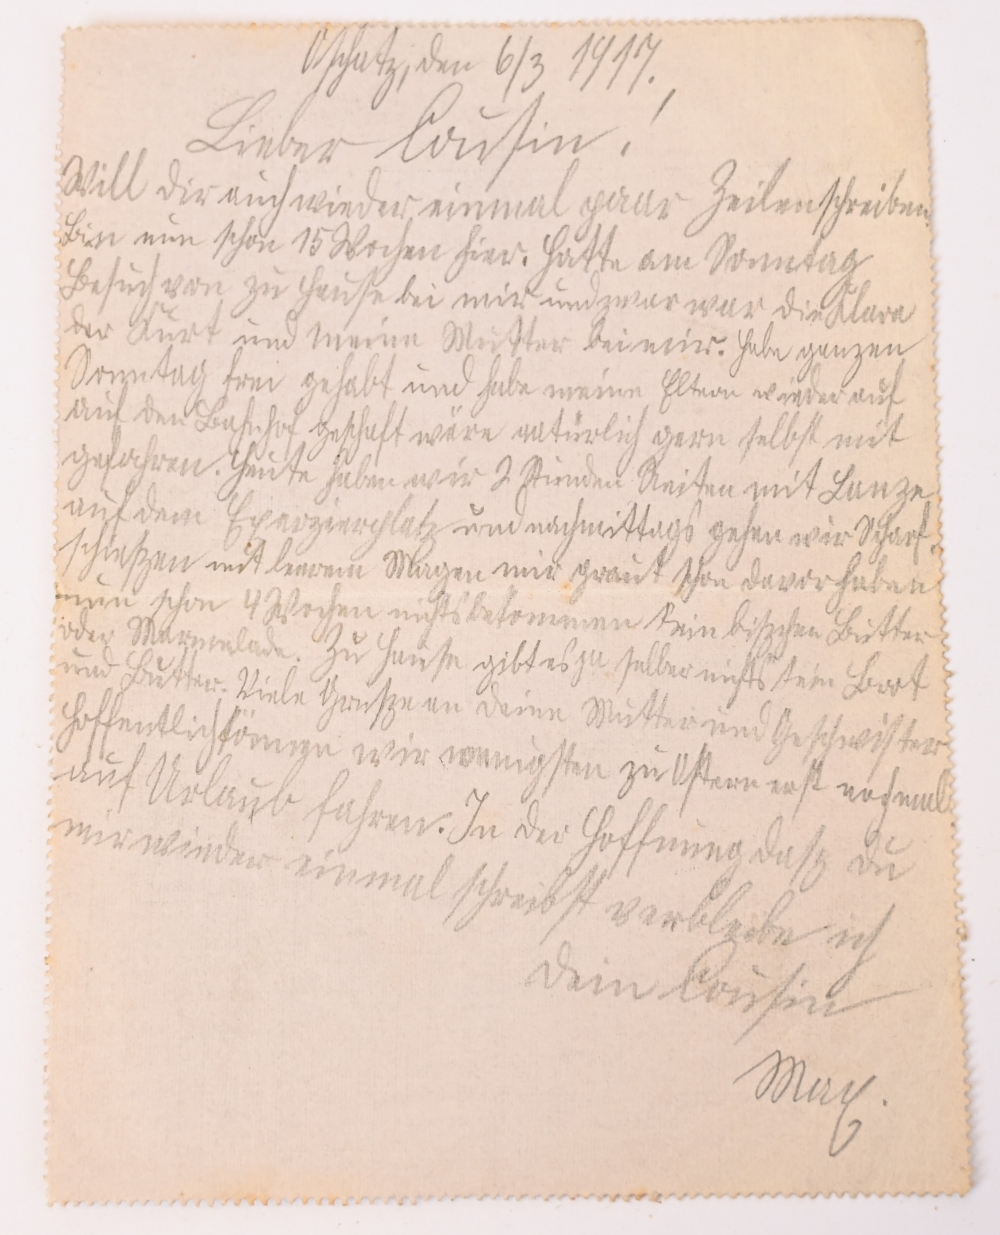 Oschatz, den 6/3 1917.
Lieber Cousin!
Will dir auch wieder einmal paar Zeilen schreiben.
Bin nun schon 15 Wochen hier. Hatte am Sonntag
Besuch von zu Hause bei mir und zwar war die Klara
der Kurt und meine Mutter bei mir. Habe ganzen
Sonntag frei gehabt und habe meine Eltern wieder auf
auf den Bahnhof geschaft wäre natürlich gern selbst mit
gefahren. Heute haben wir 2 Stunden Reiten mit Lanze
auf dem Exerzierplatz und nachmittags gehen wir Scharf-
schießen mit leerem Magen mir graut schon davor haben
nun schon 4 Wochen nichts bekommen kein bischen Butter
oder Marmelade. Zu Hause gibt es ja selber nichts kein Brot
und Butter. Viele Grusze an deine Mutter und Geschwister
Hoffentlich können wir wenigsten zu Ostern erst nochmal
auf Urlaub fahren. In der Hoffnung dasz du
mir wieder einmal schreibst verbleibe ich
dein Cousin
Max.